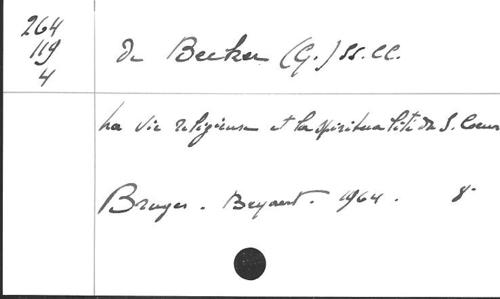 264
119
4
De Becker (G.) SS.CC.
La vie religieuse et la spiritualité du S. Coeur
Bruges. Beyaert. 1964. 8°